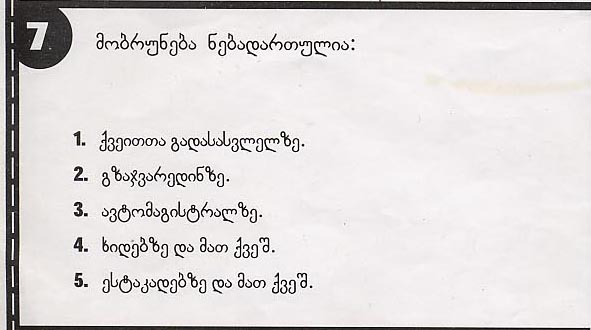 7
მობრუნება ნებადართულია:
1. ქვეითთა გადასასვლელზე.
2. გზაჯვარედინზე.
3. ავტომაგისტრალზე.
4. ხიდებზე და მათ ქვეშ.
5. ესტაკადებზე და მათ ქვეშ.